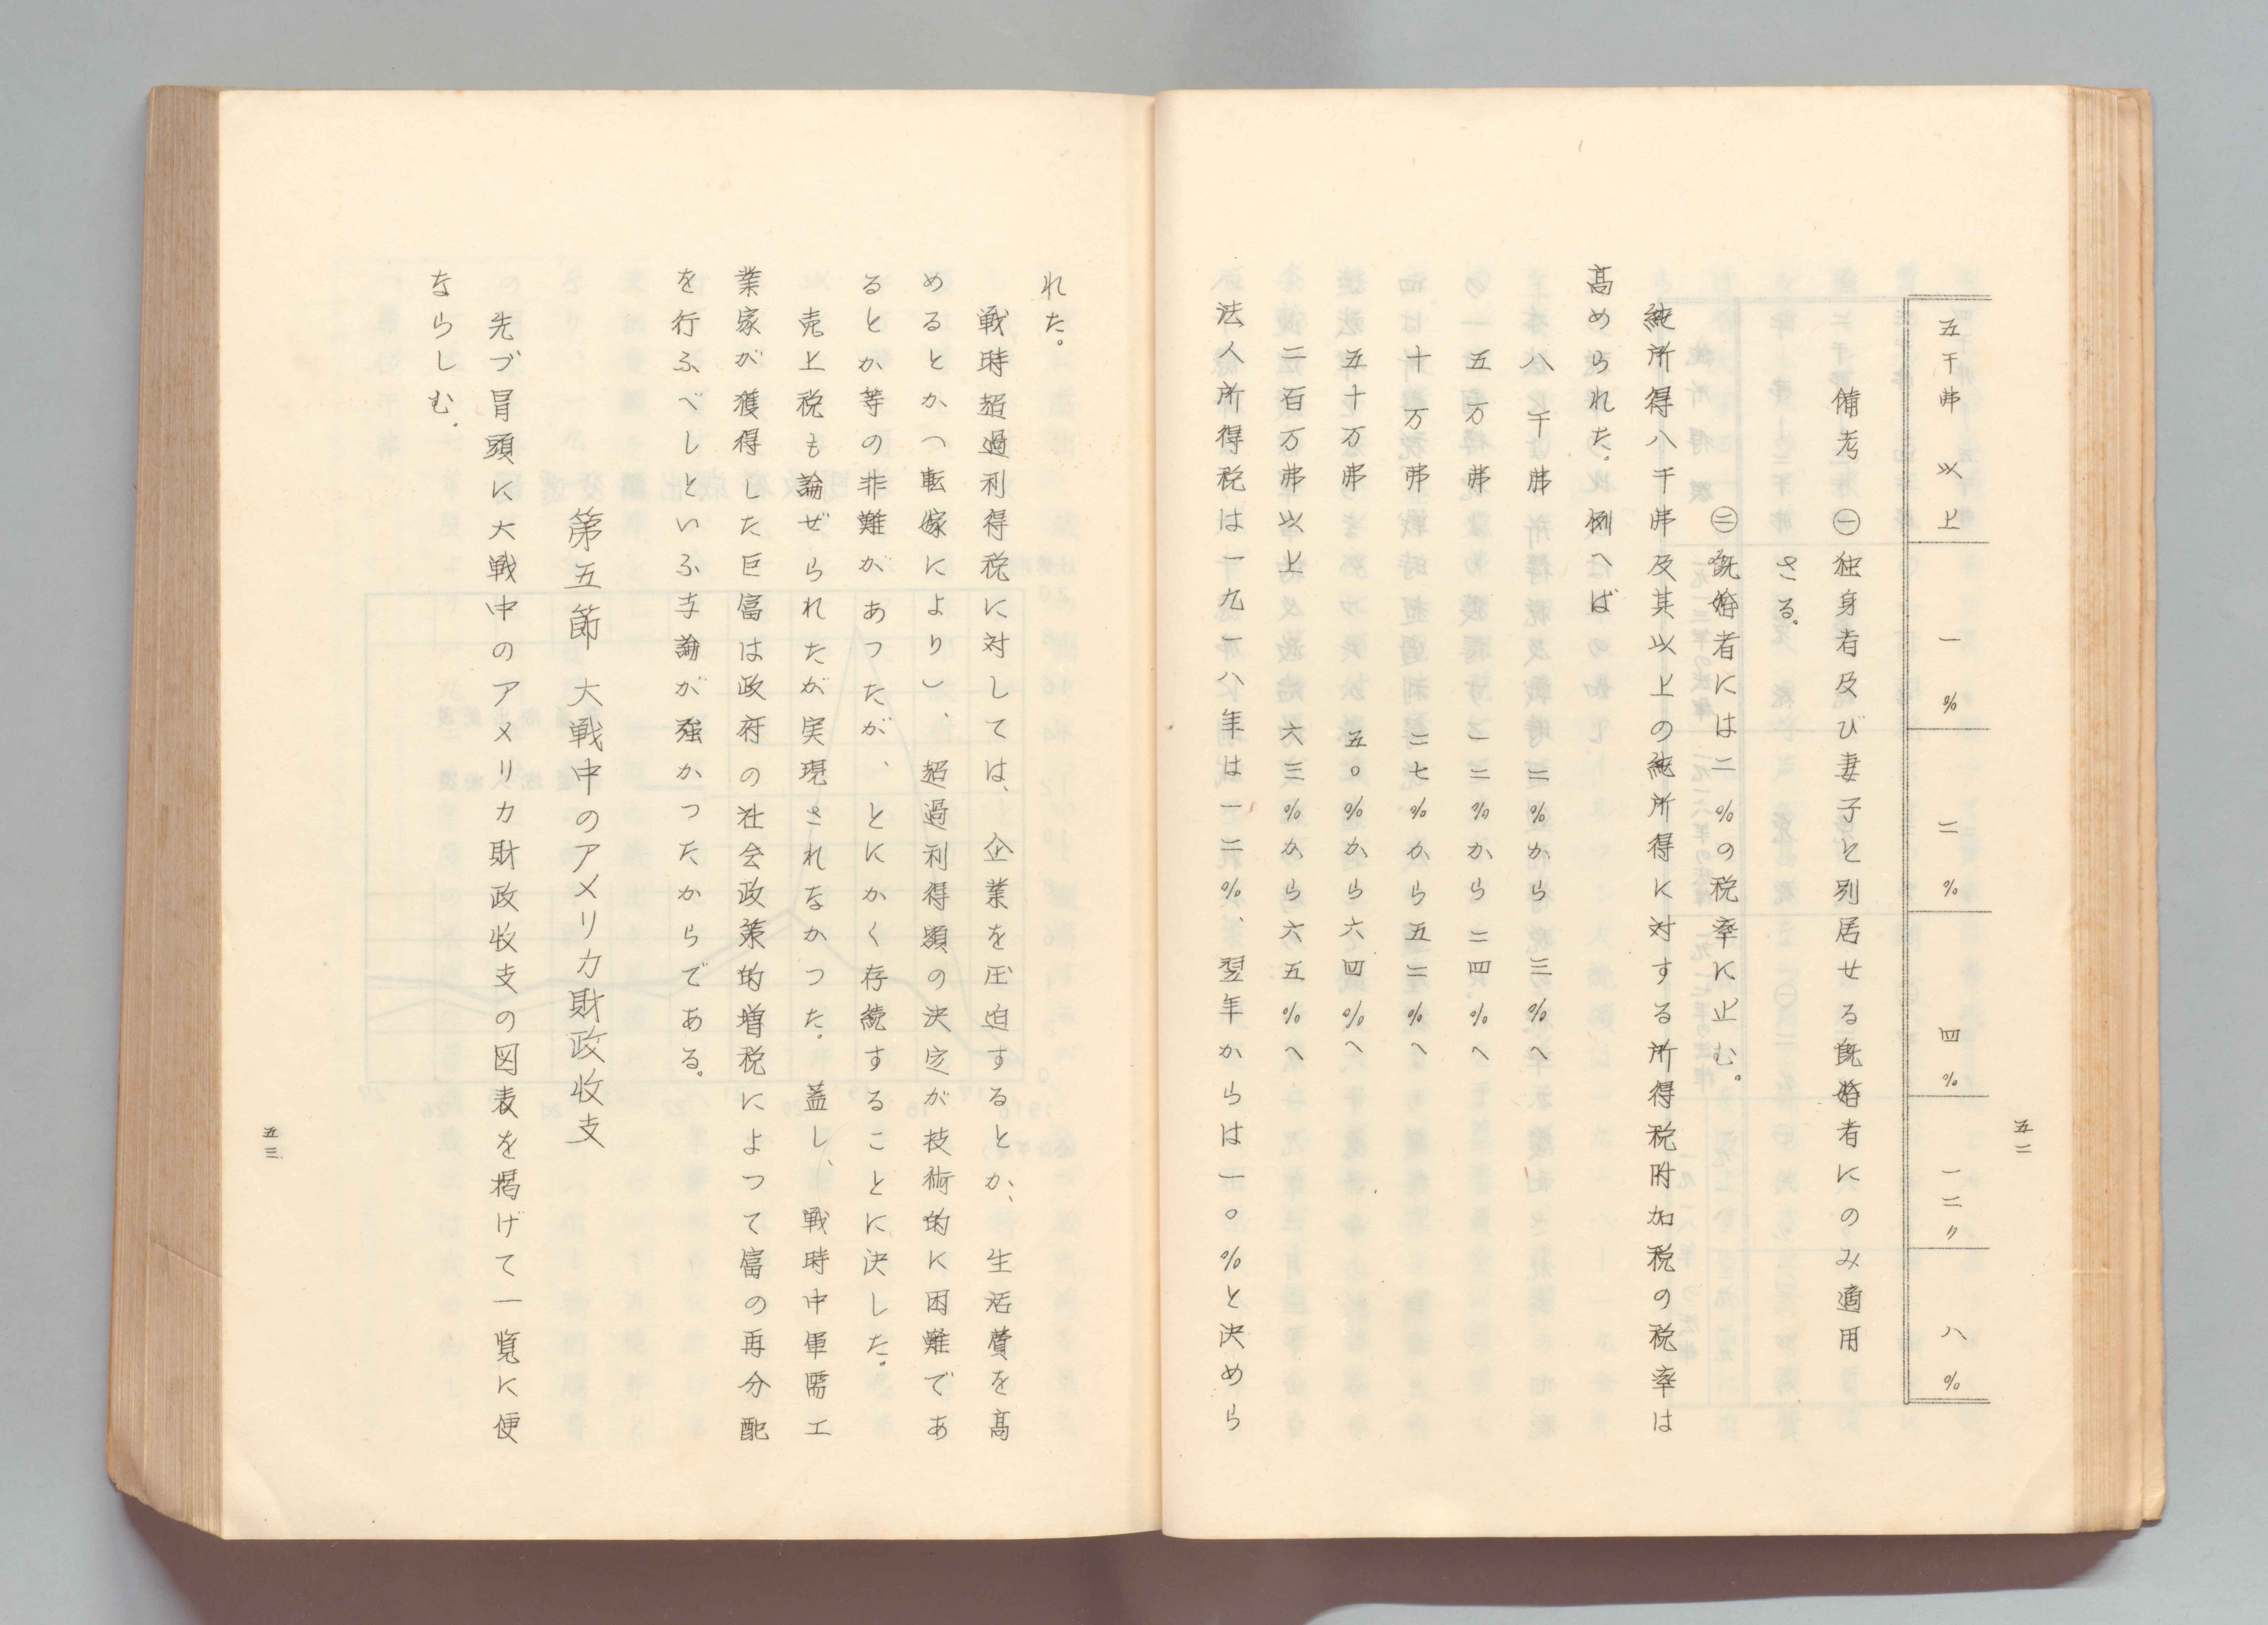 五二
五千弗以上 一% 二% 四% 一二〃 八%
備考 ㊀独身者及び妻子と別居せる既婚者にのみ適用
さる。
㊁既婚者には二%の税率に止む。
純所得八千弗及其以上の純所得に対する所得税附加税の税率は
高められた。例へば
八千弗 二%から三%へ
五万弗 一二%から二四%へ
十万弗 二七%から五二%へ
五十万弗 五〇%から六四%へ
二百万弗以上 六三%から六五%へ
法人所得税は一九一八年は一二%、翌年からは一〇%と決めら
れた。
戦時超過利得税に対しては、企業を圧迫するとか、生活費を高
めるとか(転嫁により)、超過利得額の決定が技術的に困難であ
るとか等の非難があつたが、とにかく存続することに決した。
売上税も論ぜられたが実現されなかつた。蓋し、戦時中軍需工
業家が獲得した巨富は政府の社会政策的増税によつて富の再分配
を行ふべしといふ輿論が強かつたからである。
第五節 大戦中のアメリカ財政收支
先づ冒頭に大戦中のアメリカ財政收支の図表を掲げて一覧に便
ならしむ。
五三